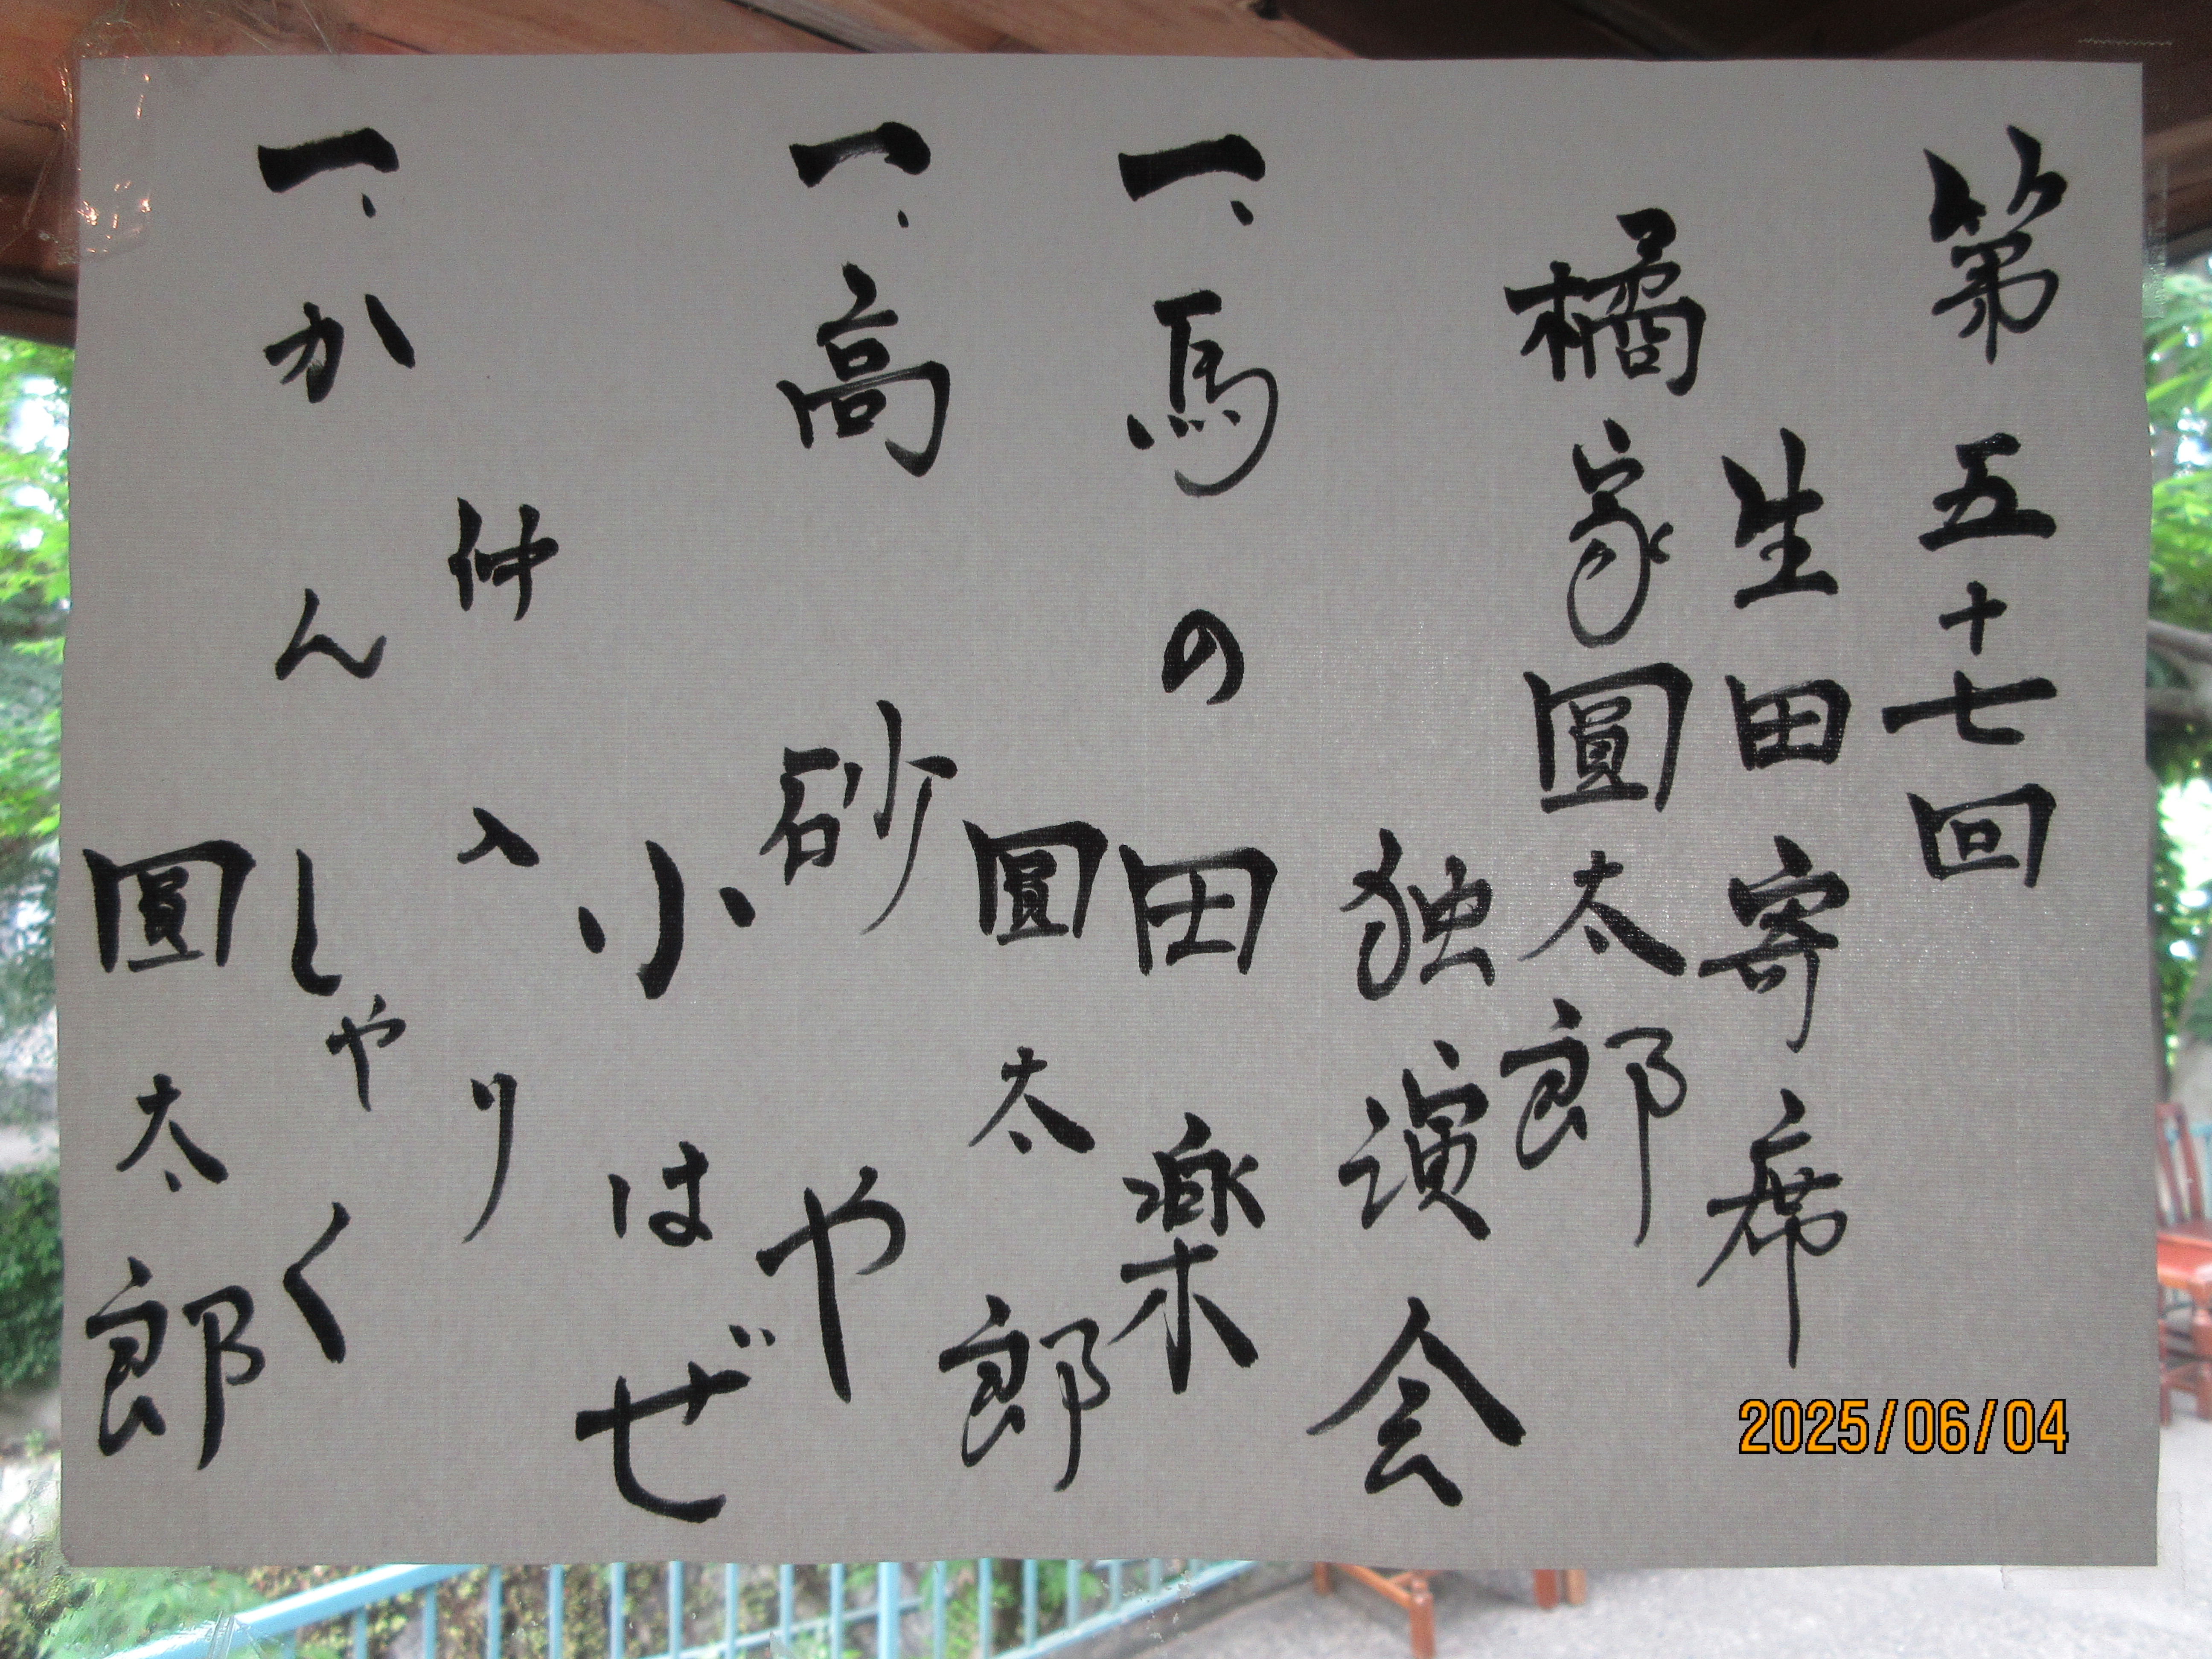 第五十七回
生田寄席
橘家圓太郎
独演会
一、馬の田楽
圓太郎
一、高砂や
小はぜ
仲入り
一、かんしゃく
圓太郎
2025/06/04